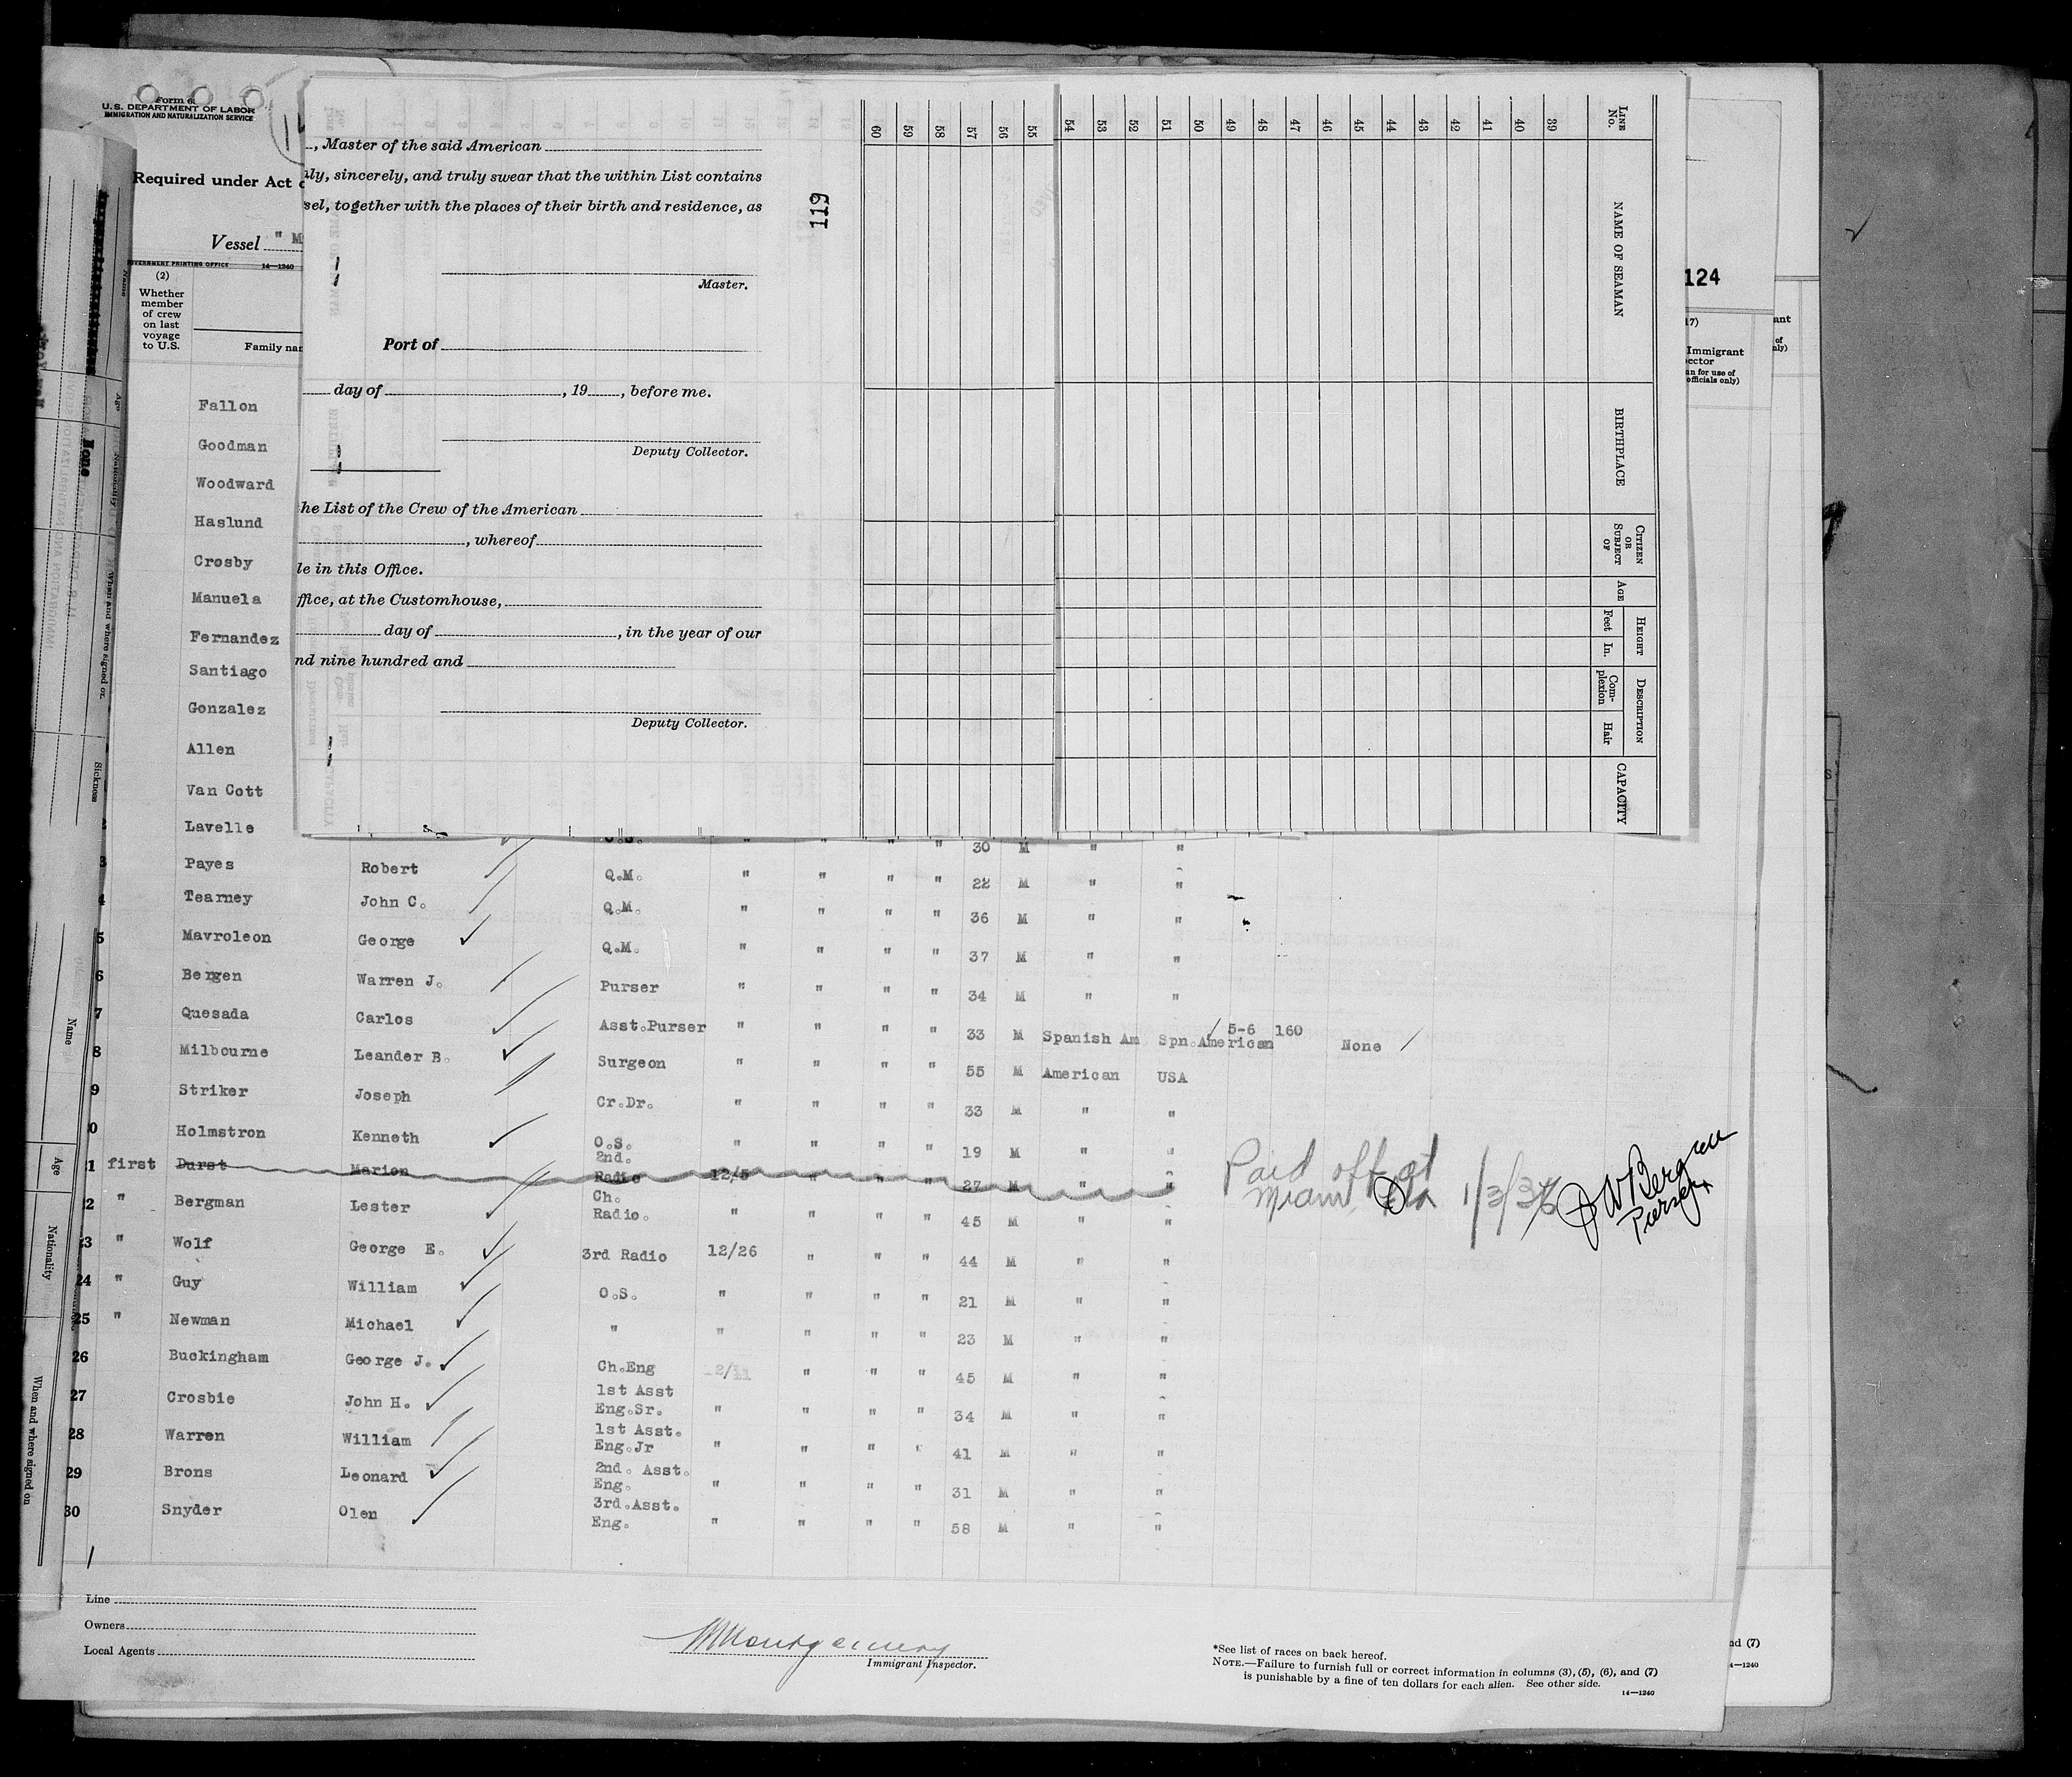 Form 6
U.S. DEPARTMENT OF LABOR
IMMIGRATION AND NATURALIZATION SERVICE
Required under Act
Vessel " M
GOVERNMENT PRINTING OFFICE 14—1240
(2)
Whether
member
of crew
on last
voyage
to U.S.
Family
Fallon
Goodman
Woodward
Haslund
Crosby
Manuela
Fernandez
Santiago
Gonzalez
Allen
Van Cott
Lavelle
, Master of the said American
sincerely, and truly swear that the within List contains
together with the places of their birth and residence, as
Master.
119
Port of
day of , 19 , before me.
Deputy Collector.
the List of the Crew of the American
, whereof
in this Office.
Office, at the Customhouse,
day of , in the year of our
nine hundred and
Deputy Collector.
60 59 58 57 56 55 54 53 52 51 50 49 48 47 46 45 44 43 42 41 40 39
LINE No.
NAME OF SEAMAN
BIRTHPLACE
CITIZEN OR SUBJECT OF
AGE
HEIGHT
Feet In.
DESCRIPTION
Complexion Hair
CAPACITY
124
Immigrant
officials only)
O.S. " " " " 30 M " "
3 Payes Robert Q.M. " " " " 22 M " "
4 Tearney John C. Q.M. " " " " 36 M " "
5 Mavroleon George Q.M. " " " " 37 M " "
6 Bergen Warren J. Purser " " " " 34 M " "
7 Quesada Carlos Asst.Purser " " " " 33 M Spanish Am Spn.American 5-6 160 None
8 Milbourne Leander B. Surgeon " " " " 55 M American USA
9 Striker Joseph Cr.Dr. " " " " 33 M " "
0 Holmstron Kenneth O.S. " " " " 19 M " "
1 first Durst Marion 2nd. Radio 12/5 " " " 27 M " "
Paid off at
Miami, Fla 1/3/36
W Bergen
Purser
2 " Bergman Lester Ch. Radio. " " " " 45 M " "
3 " Wolf George E. 3rd Radio 12/26 " " " 44 M " "
24 " Guy William O.S. " " " " 21 M " "
25 " Newman Michael " " " " " 23 M " "
26 Buckingham George J. Ch.Eng 2/11 " " " 45 M " "
27 Crosbie John H. 1st Asst Eng.Sr. " " " " 34 M " "
28 Warren William 1st Asst. Eng.Jr " " " " 41 M " "
29 Brons Leonard 2nd. Asst. Eng. " " " " 31 M " "
30 Snyder Olen 3rd.Asst. Eng. " " " " 58 M " "
Line
Owners
Local Agents
Montgomery
Immigrant Inspector.
*See list of races on back hereof.
NOTE.—Failure to furnish full or correct information in columns (3), (5), (6), and (7)
is punishable by a fine of ten dollars for each alien. See other side.
14—1240
and (7)
Name
Age
Nationality
When and where signed on
When and where signed on.
Sickness
None